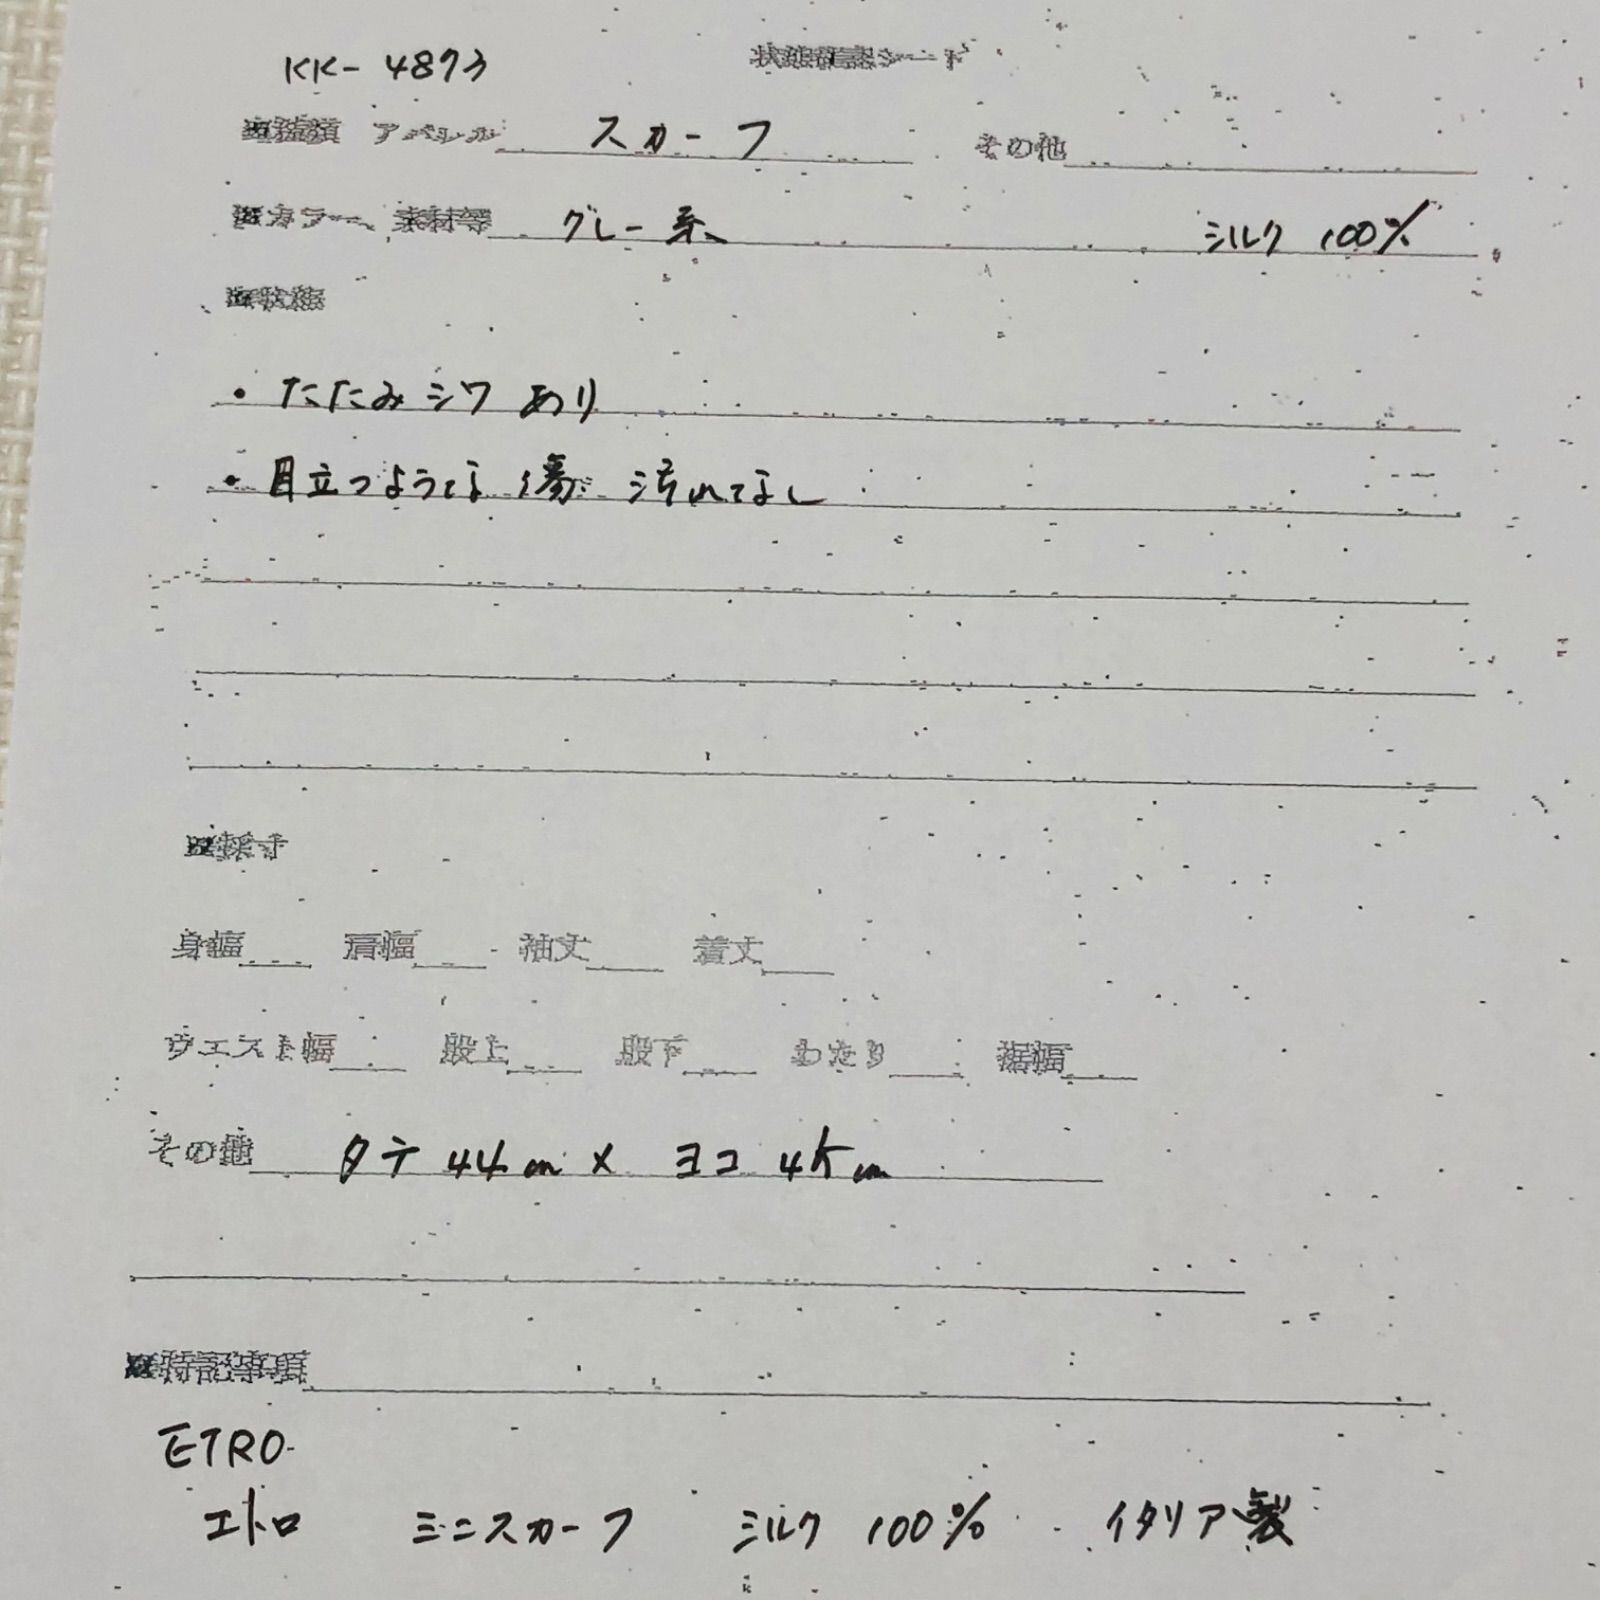 KK-4873 状態確認シート
■種類 アパレル スカーフ その他
■カラー、素材等 グレー系 シルク 100%
■状態
・たたみシワ あり
・目立つような 傷 汚れなし
■採寸
身幅 肩幅 袖丈 着丈
ウエスト幅 股上 股下 わたり 裾幅
その他 タテ 44cm × ヨコ cm
■特記事項
ETRO
エトロ ミニスカーフ シルク 100% イタリア製